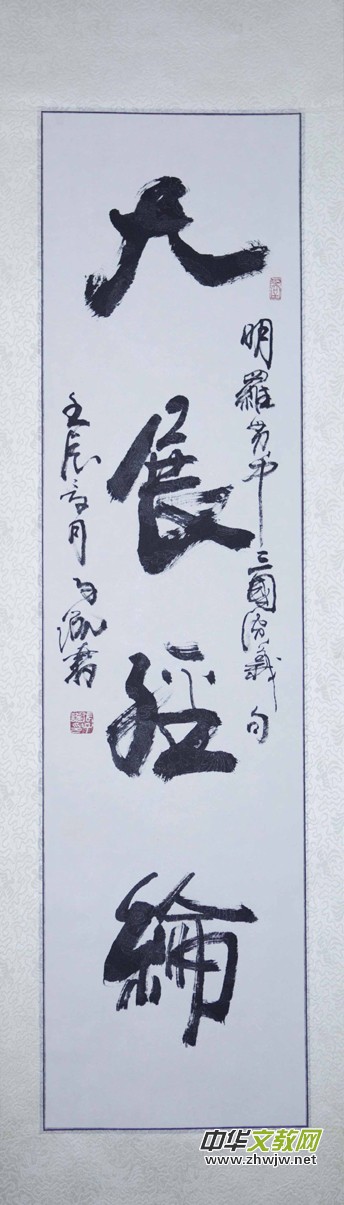 大展经纶
明羅贯中三國演義句
壬辰
月
中华文教网
www.zhwjw.net